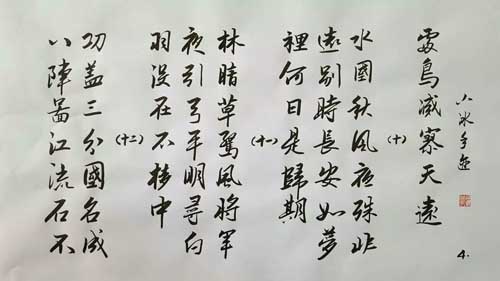 小冰手迹
處鳥滅寒天遠
(十)
水國秋風夜殊非
遠別時長安如夢
裡何日是歸期
(十一)
林暗草驚風將軍
夜引弓平明尋白
羽没在石棱中
(十二)
功蓋三分國名成
八陣啚江流石不
4.